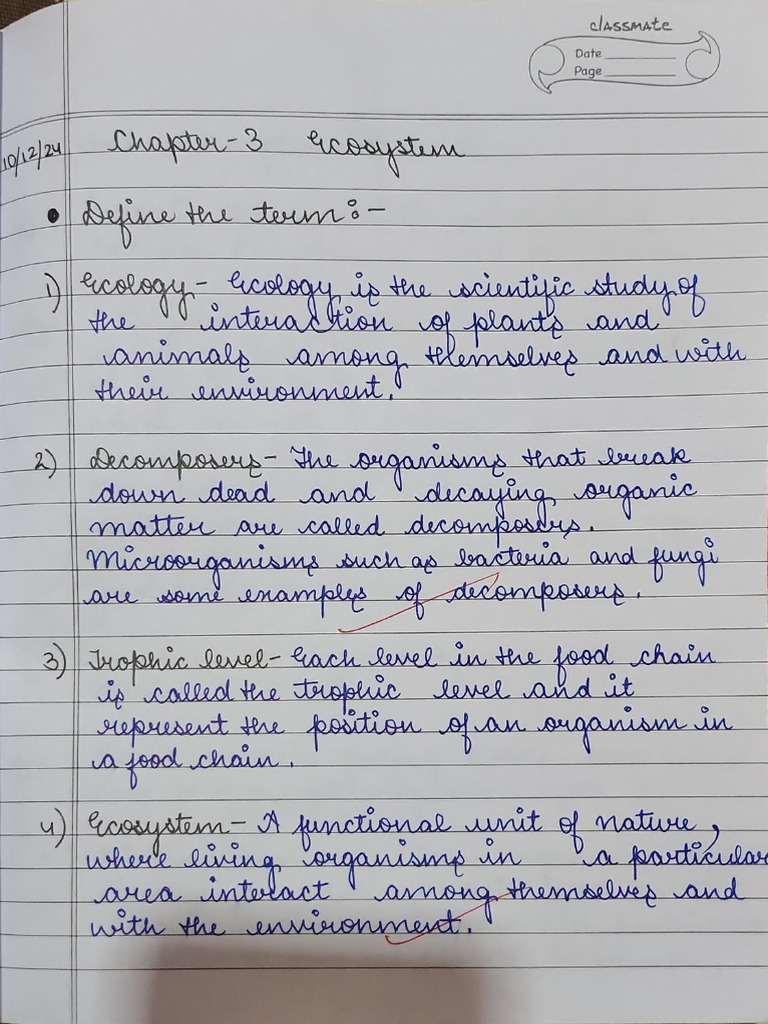 classmate
Date
Page
10/12/24 Chapter-3 Ecosystem
• Define the term:-
1) Ecology- Ecology is the scientific study of
the interaction of plants and
animals among themselves and with
their environment.
2) Decomposers- The organisms that break
down dead and decaying organic
matter are called decomposers.
Microorganisms such as bacteria and fungi
are some examples of decomposers.
3) Trophic level- Each level in the food chain
is called the trophic level and it
represent the position of an organism in
a food chain.
4) Ecosystem- A functional unit of nature,
where living organisms in a particular
area interact among themselves and
with the environment.